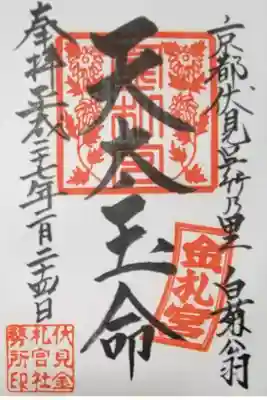 京都伏見呉竹乃里 白菊翁
天太玉命
金札宮
奉拝 平成二十七年二月二十四日
伏見金
札宮社
務所印